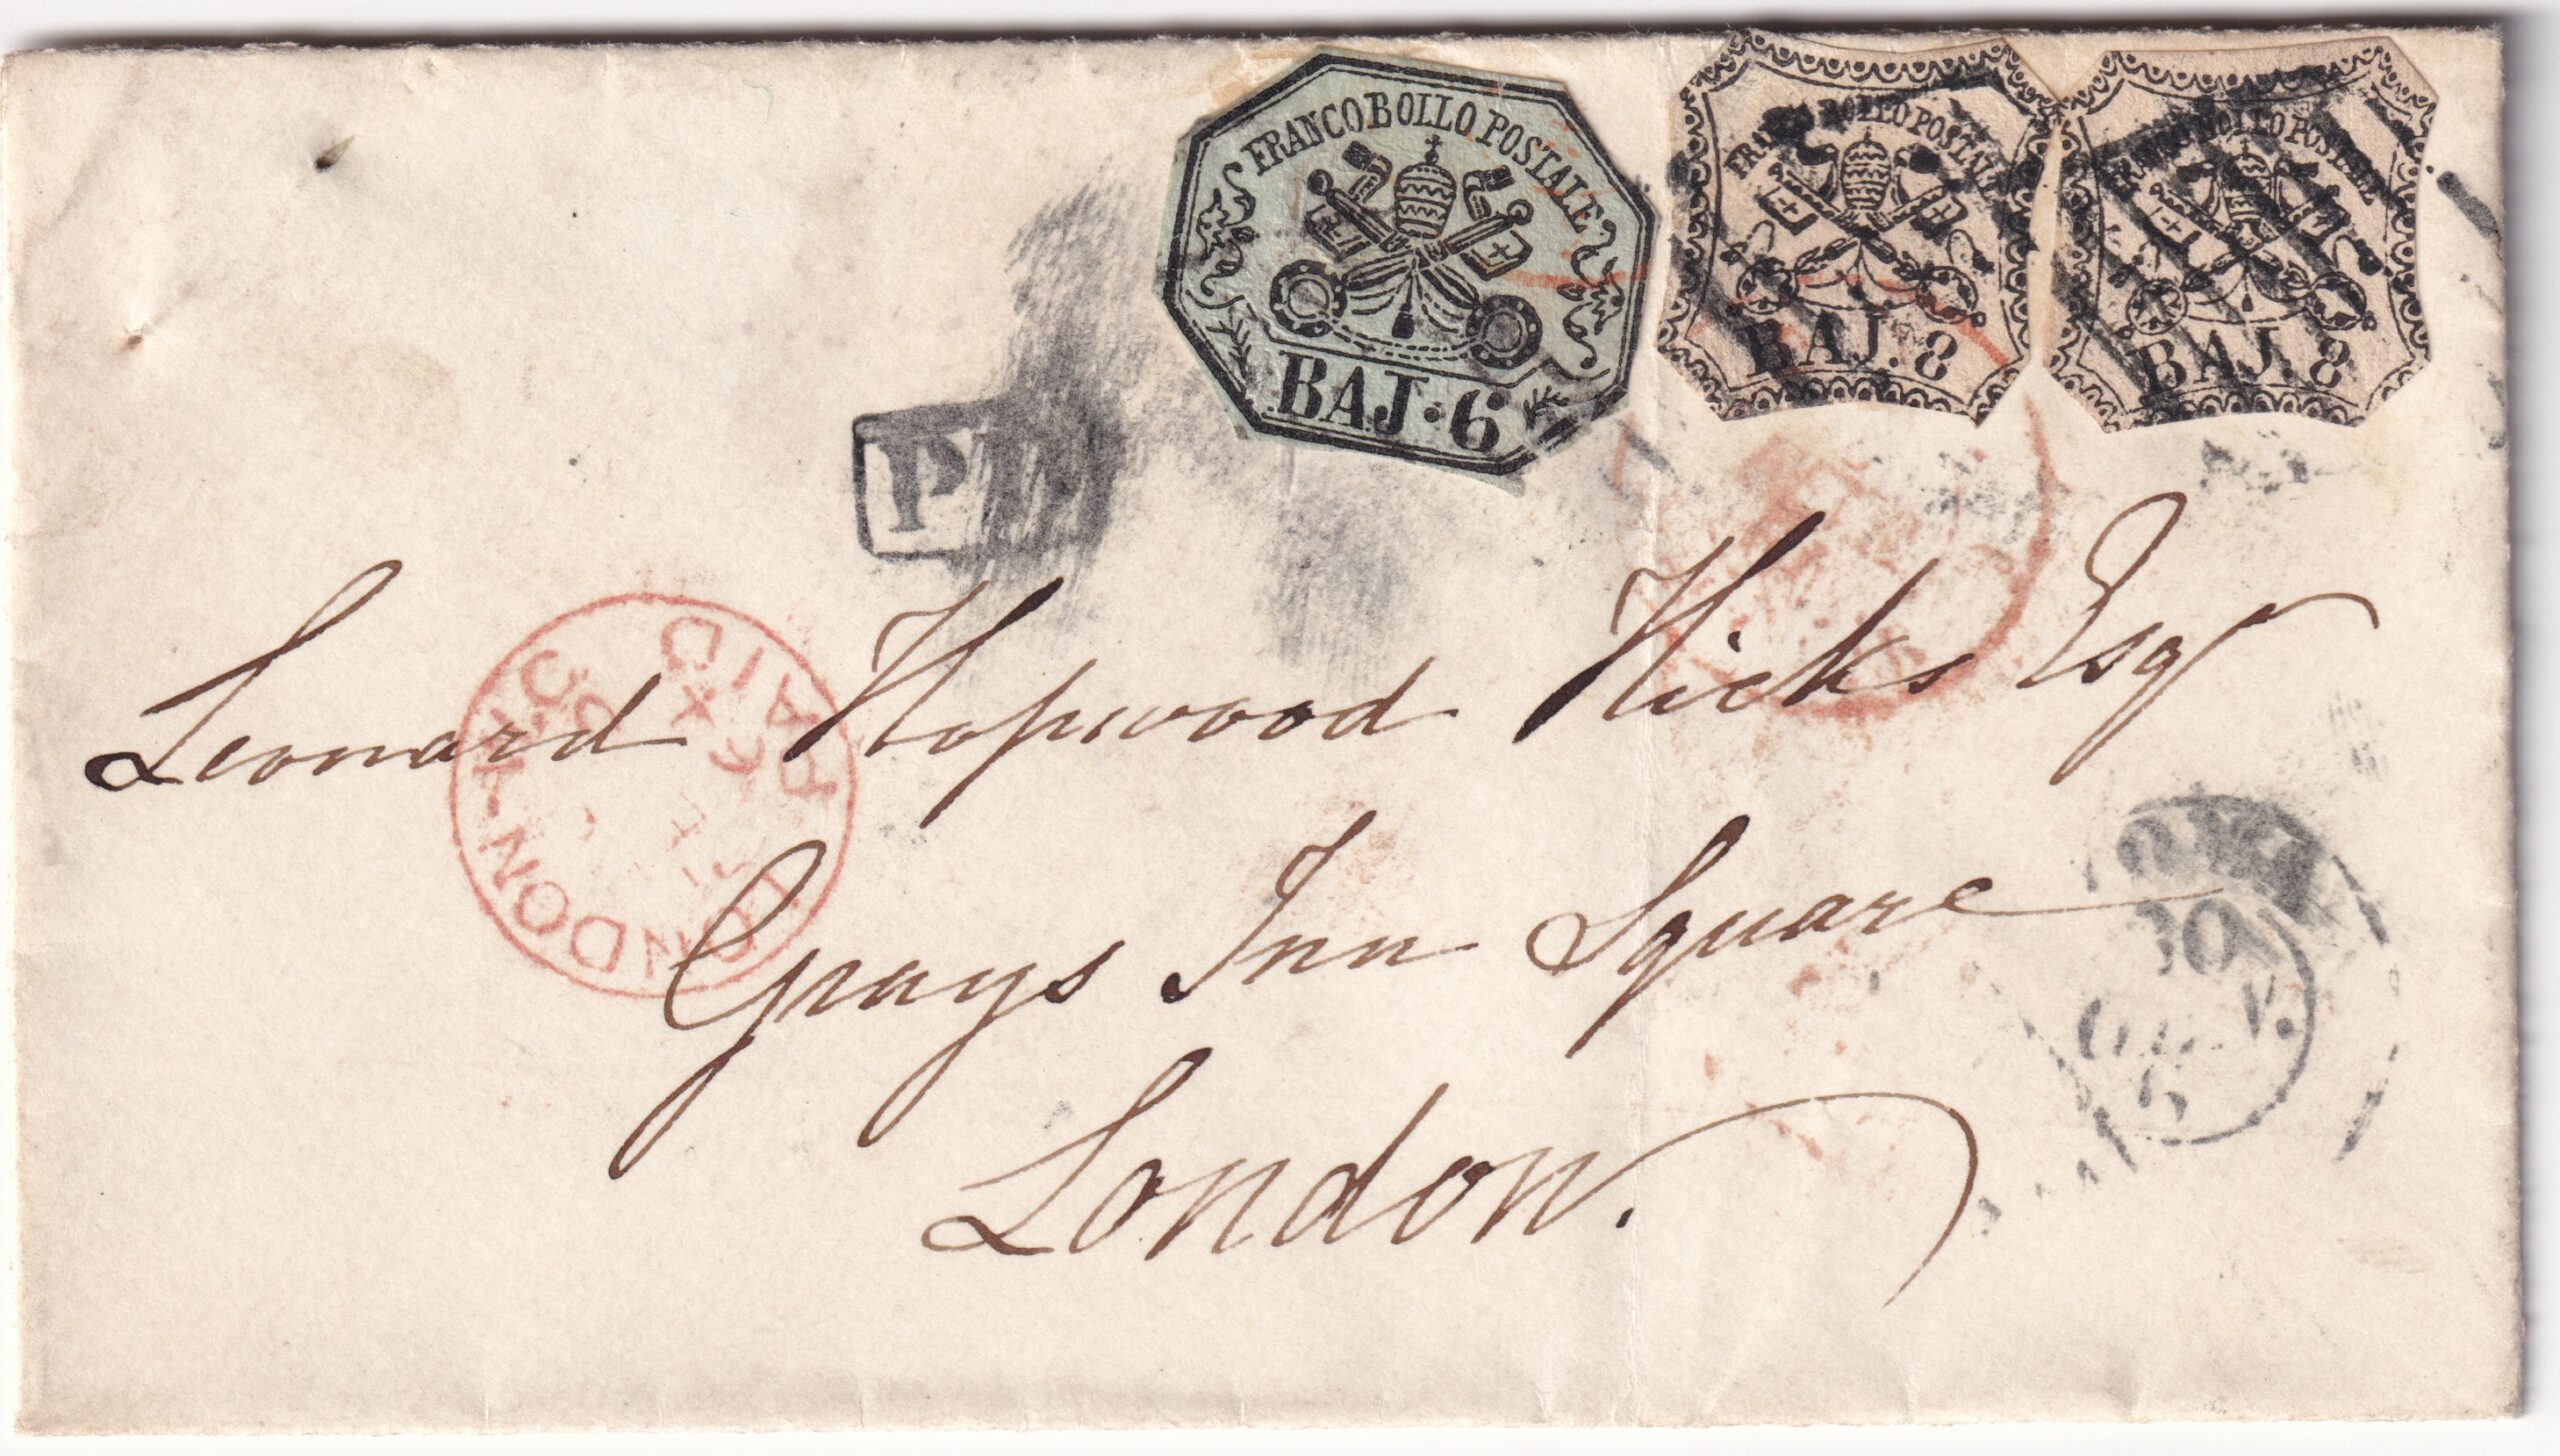 FRANCO BOLLO POSTALE
BAJ. 6
FRANCO BOLLO POSTALE
BAJ. 8
FRANCO BOLLO POSTALE
BAJ. 8
PD
Leonard Hopwood Hicks Esq
Grays Inn Square
London.
LONDON
PAID
ROMA